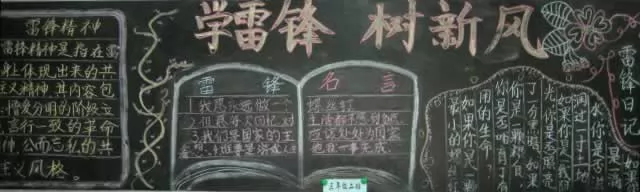 学雷锋 树新风
雷锋精神
雷锋精神是指在雷
身上体现出来的共
主义精神,其内容包
:憎爱分明的阶级立
、言行一致的革命
神、公而忘私的共
主义风格。
雷锋 名言
1.我愿永远做一个
螺丝钉
2.但愿每次回忆,对
生活都不感到负疚
3.我们是国家的主
应该处处为国家
雷锋日记
如果你是一滴
水,你是否滋
润过一寸土地
如果你是一线
光,你是否照亮
了一分黑暗,如果
你是一颗粮食
你是否哺育了有
用的生命?
如果你是一
最小的螺
三年级二班